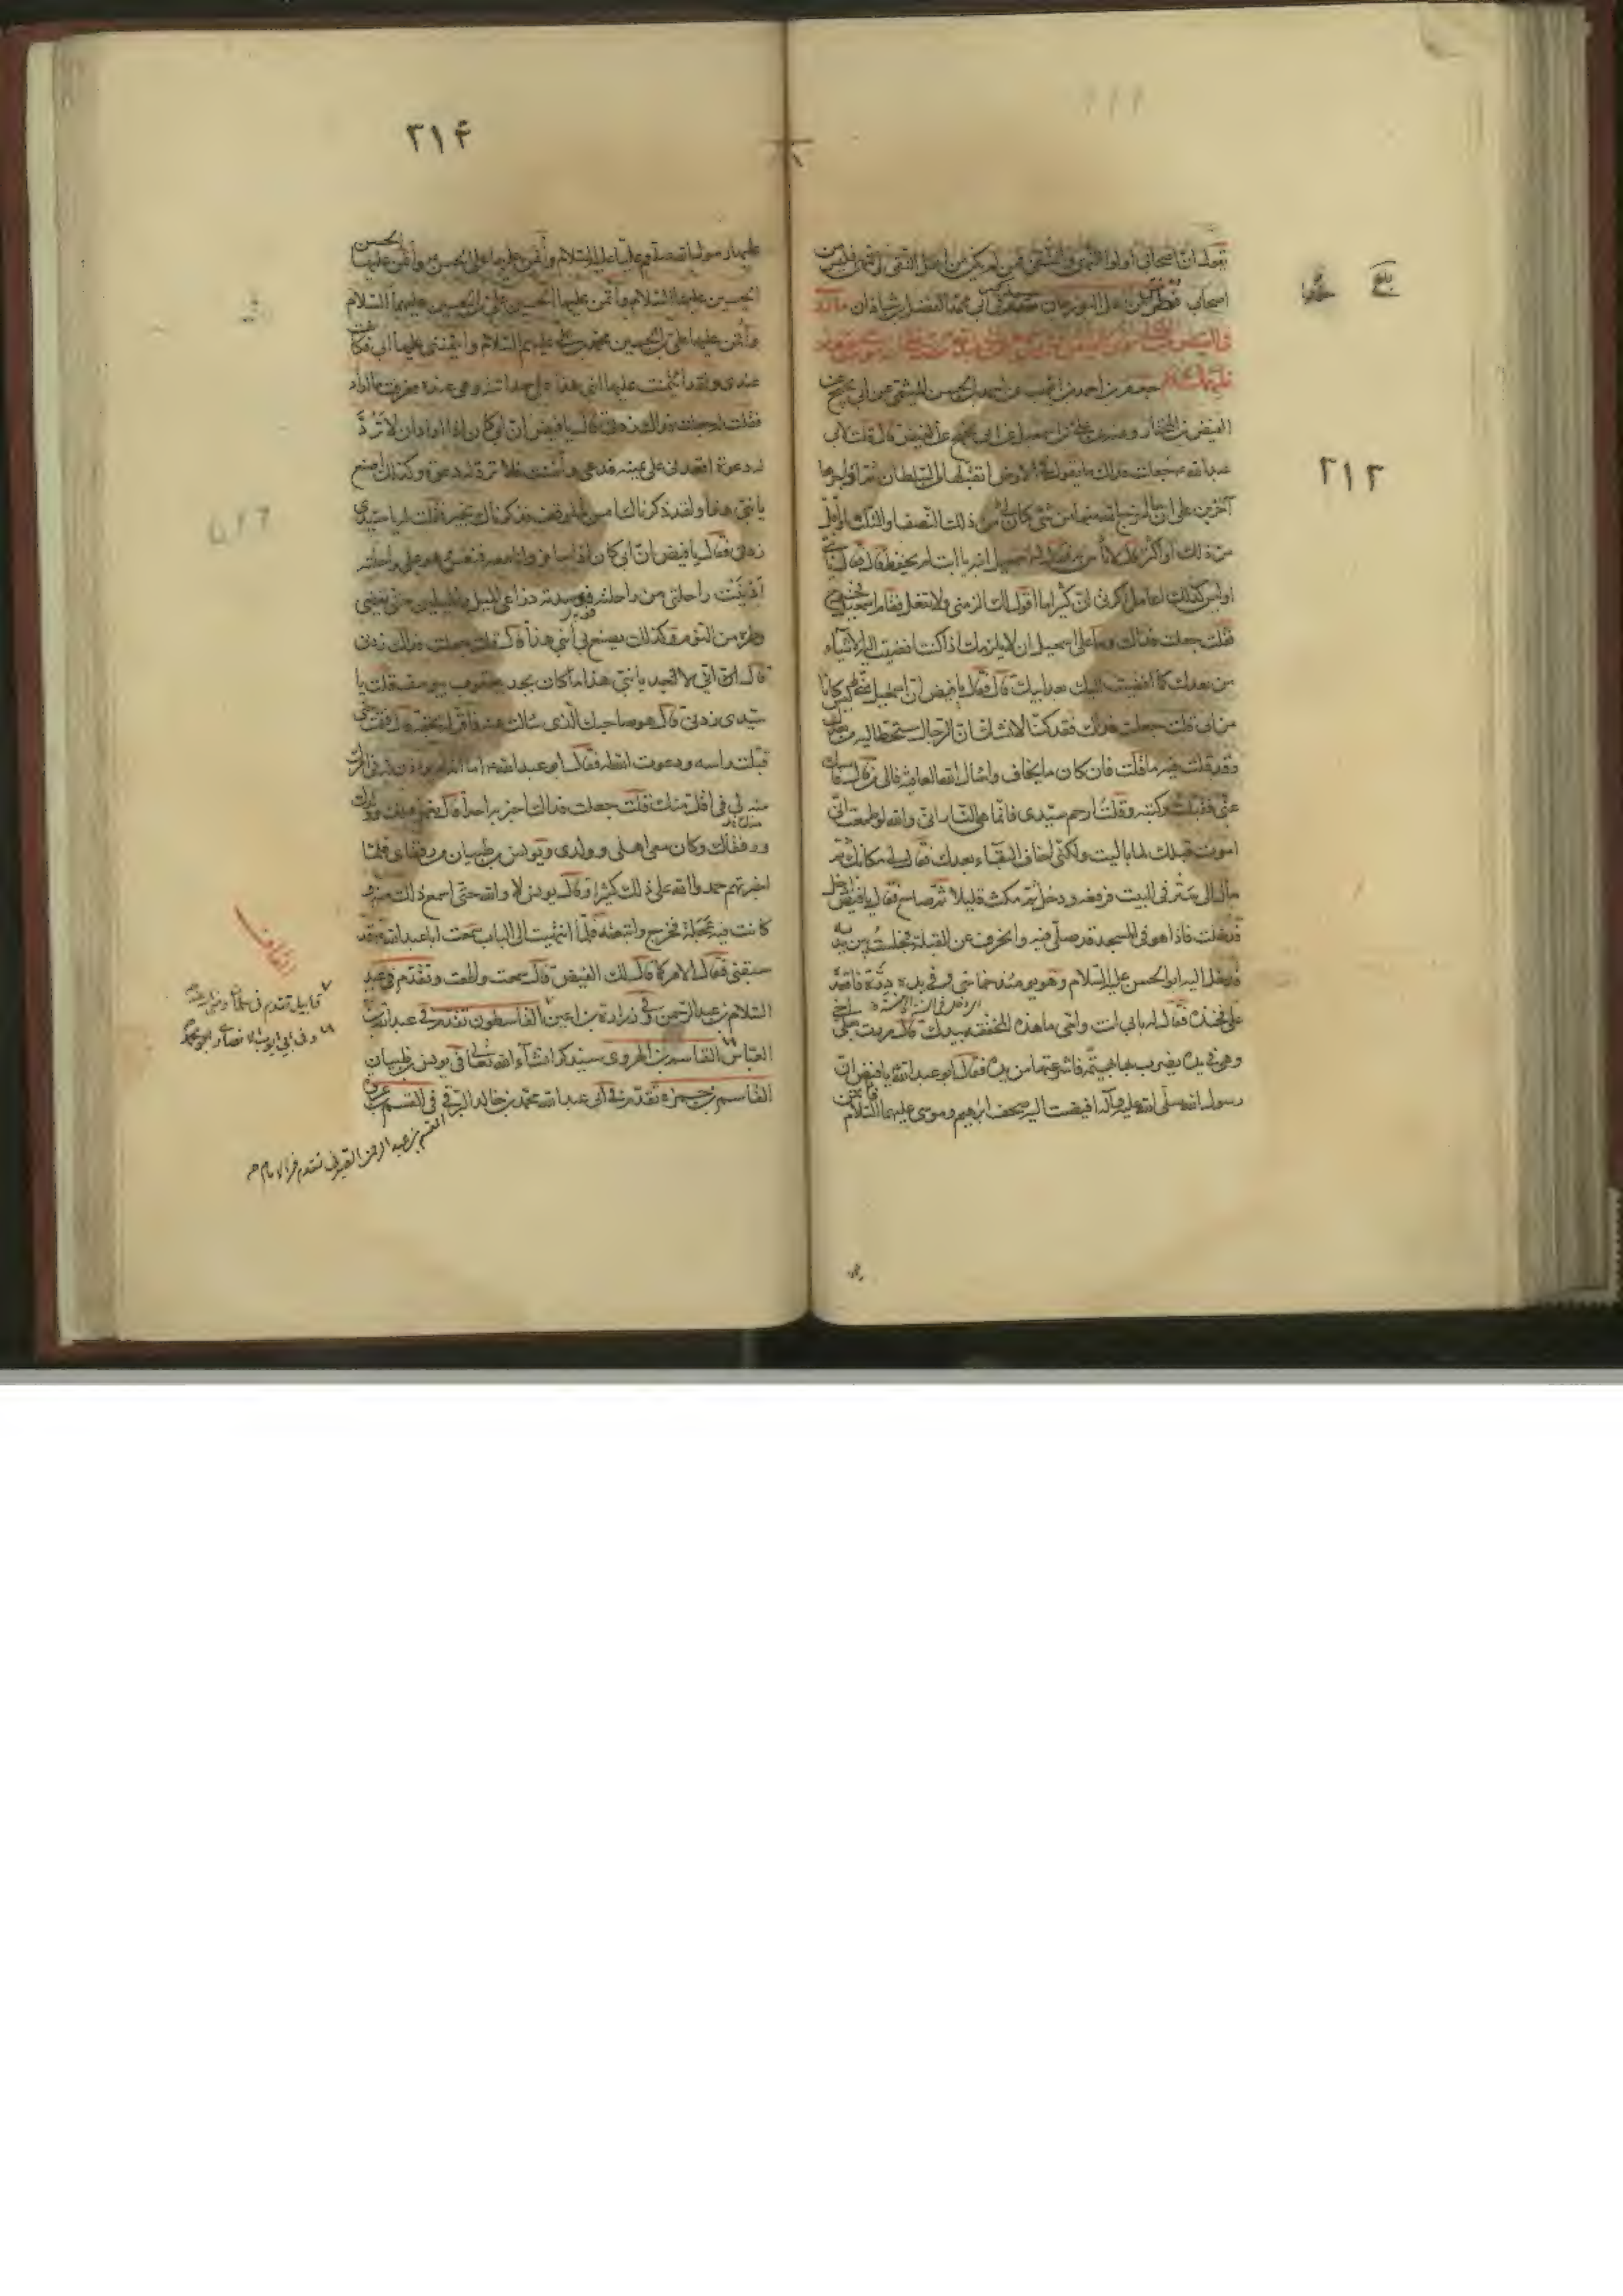 ٢١٣
يقول ان اصحابي اولوا النهى والتقى فمن لم يكن من اهل النهى والتقى فليس من
اصحابي
عليهما السلام جعفر بن احمد بن ايوب عن احمد بن الحسن الميثمي عن ابي نجيح عن
الفيض بن المختار وعنه عن علي بن اسمعيل عن ابي نجيح عن الفيض قال قلت لابي
عبد الله جعلت فداك ما تقول في الارض اتقبلها من السلطان ثم اواجرها
آخرين على ان ما اخرج الله منها من شيء كان لي من ذلك النصف او الثلث او اقل
من ذلك او اكثر قال لا بأس به فقال له اسمعيل ابنه يا ابت لم تحفظ قال فقال يا بني
اوليس كذلك اعامل اكرتي ان كثيرا ما اقول لك الزمني ولا تفعل فقام اسمعيل فخرج
فقلت جعلت فداك وما على اسمعيل ان لا يلزمك اذا كنت افضيت اليه الاشياء
من بعدك كما افضيت اليك بعد ابيك قال فقال يا فيض ان اسمعيل ليس كانا
من ابي قلت جعلت فداك فقد كنا لا نشك ان الرحال ستحط اليه من بعدك
وقد قلت فيه ما قلت فان كان ما يخاف واسال الله العافية فالى من قال فامسك
عني فقبلت ركبته وقلت ارحم سيدي فانما هي النار اني والله لو طمعت اني
اموت قبلك لما باليت ولكني اخاف البقاء بعدك فقال لي مكانك ثم
مال الى ستر في البيت فرفعه ودخل ثم مكث قليلا ثم صاح فقال يا فيض ادخل
فدخلت فاذا هو في المسجد قد صلى فيه وانحرف عن القبلة فجلست بين يديه
فدخل اليه ابو الحسن عليه السلام وهو يومئذ خماسي وفي يده درة فاقعده
على فخذه فقال له بابي انت وامي ما هذه المخفقة بيدك قال مررت بعلي اخي
وهي في يده يضرب بها بهيمة فانتزعتها من يده فقال ابو عبد الله يا فيض ان
رسول الله صلى الله عليه وآله افيضت اليه صحف ابراهيم وموسى عليهما السلام فائتمن
٢١۴
عليها رسول الله ص عليا عليه السلام وائتمن عليها علي الحسن وائتمن عليها الحسن
الحسين عليهما السلام وائتمن عليها الحسين علي بن الحسين عليهما السلام
وائتمن عليها علي بن الحسين محمد بن علي عليهم السلام وائتمنني عليها ابي فكانت
عندي ولقد ائتمنت عليها ابني هذا على حداثته وهي عنده فعرفت ما اراد
فقلت له جعلت فداك زدني قال يا فيض ان ابي كان اذا اراد ان لا ترد
له دعوة اقعدني على يمينه فدعى وامنت فلا ترد له دعوة وكذلك اصنع
يا بني هذا ولقد ذكرناك امس بالموقف فذكرناك بخير فقلت له يا سيدي
زدني فقال يا فيض ان ابي كان اذا سافر وانا معه فنعس وهو على راحلته
ادنيت راحلتي من راحلته فوسدته ذراعي الميل والميلين حتى يقضي
وطره من النوم وكذلك يصنع بي ابني هذا قال قلت جعلت فداك زدني
قال اني لاجد يا بني هذا ما كان يجد يعقوب بيوسف قلت يا
سيدي زدني قال هو صاحبك الذي سالت عنه فاقر له بحقه فقمت حتى
قبلت راسه ودعوت الله له فقال ابو عبد الله ع اما انه لم يؤذن له في امرك
منك قلت جعلت فداك اخبر به احدا قال نعم اهلك وولدك
ورفقاك وكان معي اهلي وولدي ويونس بن ظبيان من رفقاي فلما
اخبرتهم حمدوا الله على ذلك كثيرا وقال يونس لا والله حتى اسمع ذلك منه و
كانت فيه عجلة فخرج واتبعته فلما انتهيت الى الباب سمعت ابا عبد الله ع وقد
سبقني فقال الامر كما قال لك الفيض قال سمعت واطعت وتقدم في عبد
السلام بن عبد الرحمن وفي زرارة بن اعين القاسطون تقدم في عبد الله بن
العباس القاسم بن الهروي سيذكر انشاء الله تعالى في يونس بن ظبيان
القاسم بن حمزة تقدم في ابي عبد الله محمد بن خالد البرقي في القسم بن عوف
القسم بن عبد الرحمن تقدم في
القاف
قابيل تقدم في سلمان
وفي ابي ايوب الانصاري